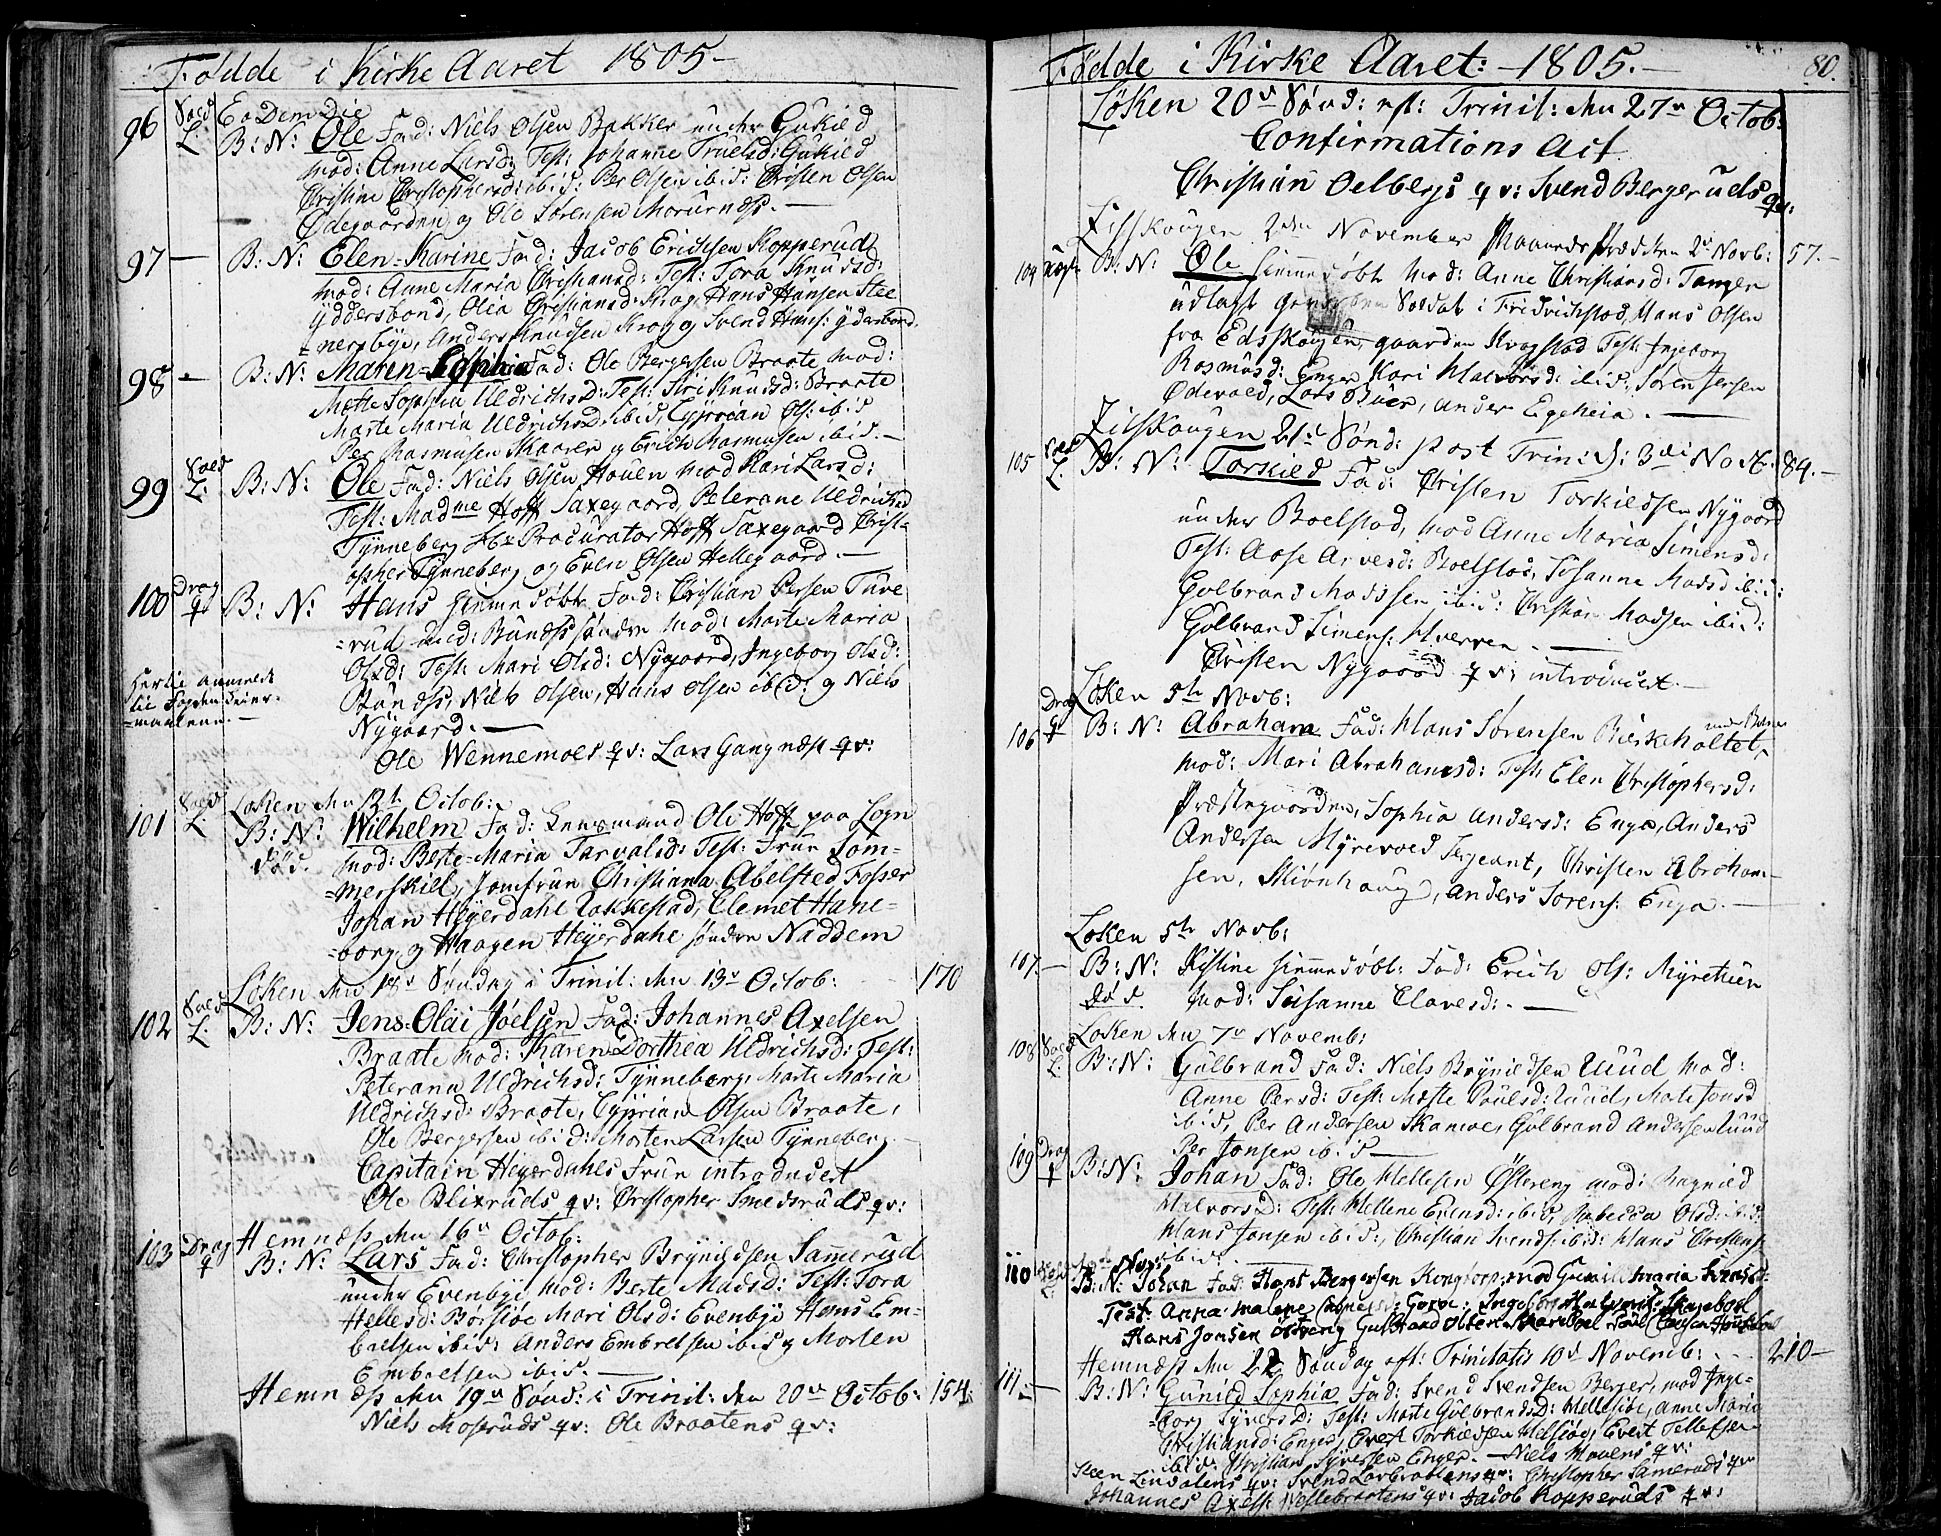 Födde i Kirke Aaret 1805 –
96 Soed L: Eodem Die
B: N: Ole Fad: Niels Olsen Bakker under Gukild
mod: Anne Larsd: Test: Johanne Truelsd: Gukild
Christine Christophersd: ibid: Per Olsen ibid: Christen Olsen
Ødegaarden og Ole Sörensen Morurness. –
97 – B: N: Elen-Karine Fad: Jacob Erichsen Kopperud
mod: Anne Maria Christiansd: Test: Tora Knudsd:
Yddersbond, Olia Christiansd: Krog, Hans Hansen Slee
=nersbye, Anders Knudsen Krog og Svend Hans: Ydersbond.
98 – B: N: Maren-Sophia Fad: Ole Bergersen Braate mod:
Mette Sophia Uldrichsd: Test: Siri Knudsd: Braate
Marte Maria Uldrichsd: ibid, Cyprian Ols: ibid
Per Rasmusen Skaarer og Erich Rasmusen ibid. –
99 Soed L: B: N: Ole Fad: Niels Olsen Houen mod Kari Larsd:
Test: Madme Hoff Saxegaard, Peterane Uldrichsd
Tynneberg Hr Procurator Hoff Saxegaard Christ-
opher Tynneberg og Even Olsen Hellegaard. –
100 Drag q B: N: Hans hiemedöbt Fad: Christian Persen Ture
=rud und: Bundss söndre mod: Marte Maria
Olsd: Test: Mari Olsd: Nygaard, Ingeborg Olsd:
Bundss, Niels Olsen, Hans Olsen ibid: og Niels
Nygaard. –
Her til anmeldt
til Copendeier-
=maalene. –
Ole Wennemoes qv: Lars Gangness qv:
Löken den 12te Octob:
101 Soed L: B: N: Wilhelm Fad: Lensmand Ole Hoff paa Logn
död. mod: Berte-Maria Tarvalsd: Test: Frue Som-
=merskiel, Jomfrue Christiana Abelsted Fosser
Johan Heyerdahl Lokkestad, Clemet Hane-
=borg og Haagen Heyerdahl söndre Naddem
Löken den 18de Sondag i Trinit: den 13de Octob: 170
102 Soed L: B: N: Jens-Olai Joelsen Fad: Johannes Axelsen
Braate mod: Karen Dorthea Uldrichsd: Test:
Peterana Uldrichsd: Tynneberg, Marte Maria
Uldrichsd: Braate, Cyprian Olsen Braate,
Ole Bergersen ibid: Morten Larsen Tynneberg. –
Capitain Heyerdahls Frue introduceret
Ole Blixruds qv: Christopher Smedsruds qv:
Hemness den 16de Octob:
103 Drag q B: N: Lars Fad: Christopher Brynildsen Sameryd
under Evenbye mod: Berte Madsd: Test: Tora
Hellesd: Börsjöe Mari Olsd: Evenbye Hans Em-
bretsen ibid: Anders Embretsen ibid og Morten
Embretsen ibid. –
Hemness den 19de Sönd: i Trinit: den 20de Octob: 154.
Niels Mosruds qv: Ole Braatens qv:

Födde i Kirke Aaret: – 1805. – 80.
Löken 20de Sönd: eft: Trinit: den 27de Octob:
Confirmations Act
Christian Oelbergs qv: Svend Bergeruds qv:
Zitskougen 2den November 2d Novb: 57. –
104 B: N: Ole hiemmedöbt mod: Anne Christiansd: Tangen
udlagt Soldat i Fridrichstad, Hans Olsen
fra Edsskougen, gaarden Krogstad Test: Ingeborg
Rasmusd: Enger Kari Halvorsd: ibid, Sören Jersen
Ødevold, Lars Buer, Anders Egeheia. –
Zitskougen 21de Sönd: post Trinit: 3die Novb. 84. –
105 Soed L: B: N: Torkild Fad: Christen Torkildsen Nygaard
under Boelstad, mod Anne Maria Simensd:
Test: Aase Arvesd: Boelstad, Johanne Madsd ibid:
Golbrand Madssen ibid: Christian Madsen ibid:
Golbrand Simens: Hverven. –
Christen Nygaard qv: introducert. –
Löken 5te Novb:
106 Drag q B: N: Abraham Fad: Hans Sörensen Bierkeholtet
mod: Mari Abrahamsd: Test: Elen Christophersd:
Præstegaarden, Sophia Andersd: Enge, Anders
Andersen Myrevold Sergeant, Christen Abraham-
sen, Skiönhaug, Anders Sörens: Enga. –
Löken 5te Novb:
107. – B: N: Kistine hiemmedöbt: Fad: Erich Ols: Myretuen
död. Mod: Susanne Clavesd: –
Löken den 7de Novemb:
108 Soed L: B: N: Gulbrand Fad: Niels Brynildsen Uud mod:
Anne Persd: Test: Mette Poulsd: Uud, Marte Jonsd
ibid, Per Andersen Skamoe, Gulbrand Andersen Uud
Per Jonsen ibid –
109 Drag q B: N: Johan Fad: Ole Hellesen Östereng mod: Ragnild
Halvorsd: Test: Hellene Evensd: ibid, Rebecca Olsd: ibid:
Hans Jonsen ibid:, Christian Svends: ibid: Hans Christens:
ibid. –
110 B: N: Johan Fad: Hans Bergersen Kongtorp, mod Gunild Maria Svensd:
Test: Anna Malene Ingeborg Halvorsd: Skagebol
Hans Jonsen Östreng Gulbrand Olsen
Hemness den 22 Söndag eft: Trinitatis 10de Novemb: – 210 –
111. – B: N: Gunild Sophia Fad: Svend Svendsen Berger, mod Inge-
=borg Syversd: Test: Marte Gulbrandsd: Hellesiöe, Anne Maria
Christiansd: Enger, Evert Torkildsen Helsiöe, Evert Tellefsen
ibid: Christian Syversen Enger. – Niels Hauens qv:
Steen Lindalens qv: Svend qv: Christopher Sameruds qv
Johannes Axels: Westebraatens qv: Jacob Kopperuds qv: